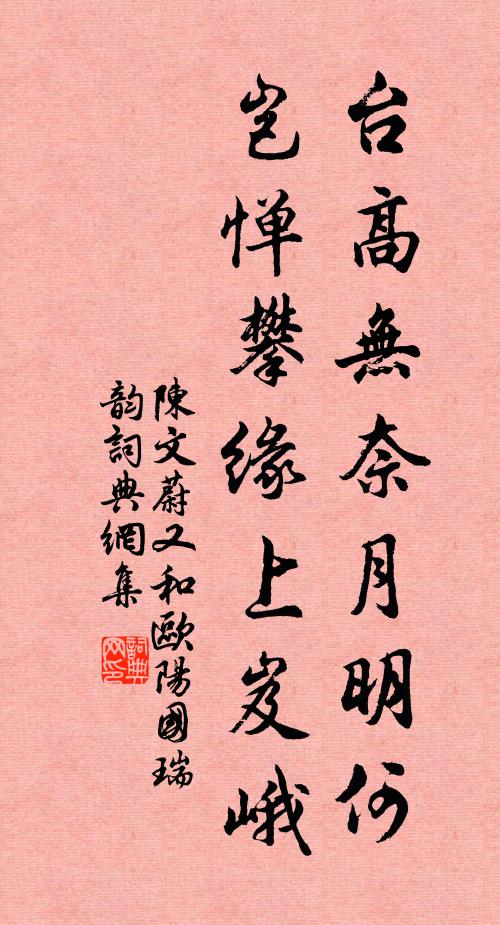 台高無奈月明何
豈憚攀緣上岌峨
陳文蔚又和歐陽國瑞
韵詞典網集
詞典网印